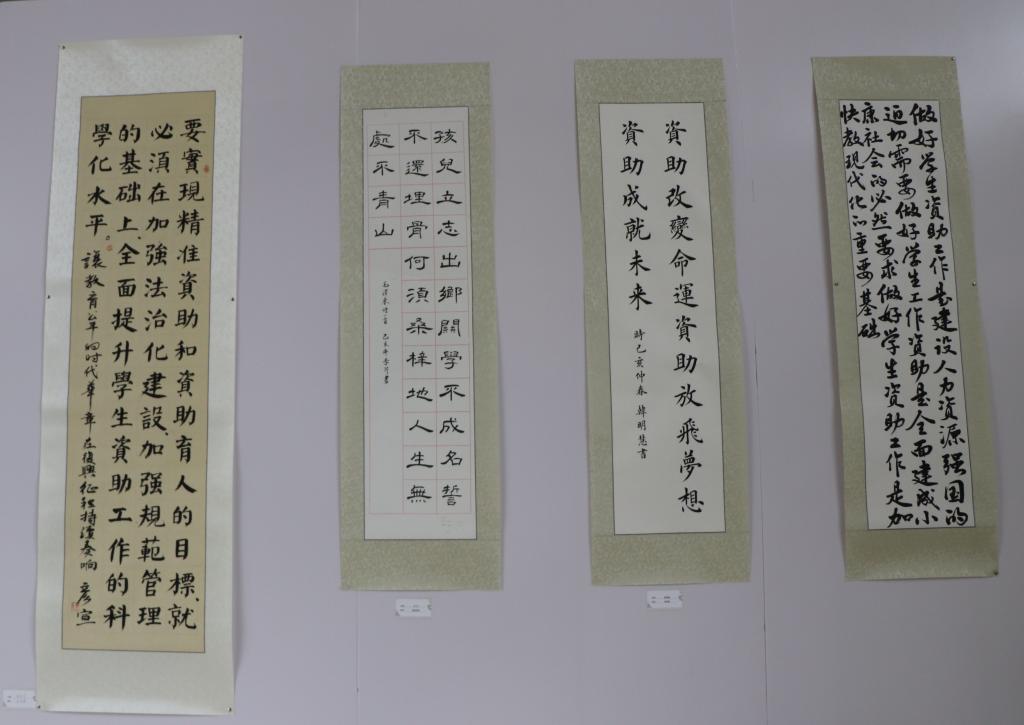 要實現精准資助和資助育人的目標、就
必須在加強法治化建設、加强規範管理
的基础上、全面提升學生資助工作的科
學化水平。
讓教育公平的时代華章在復興征程持續奏响 彦宣
孩兒立志出鄉關學不成名誓
不還埋骨何須桑梓地人生無
處不青山
資助改變命運資助放飛夢想
資助成就未来
時己亥仲春 韓明慧書
做好学生资助工作是建设人力资源强国的
迫切需要做好学生工作资助是全面建成小
康社会的必然要求做好学生资助工作是加
快教现代化的重要基础